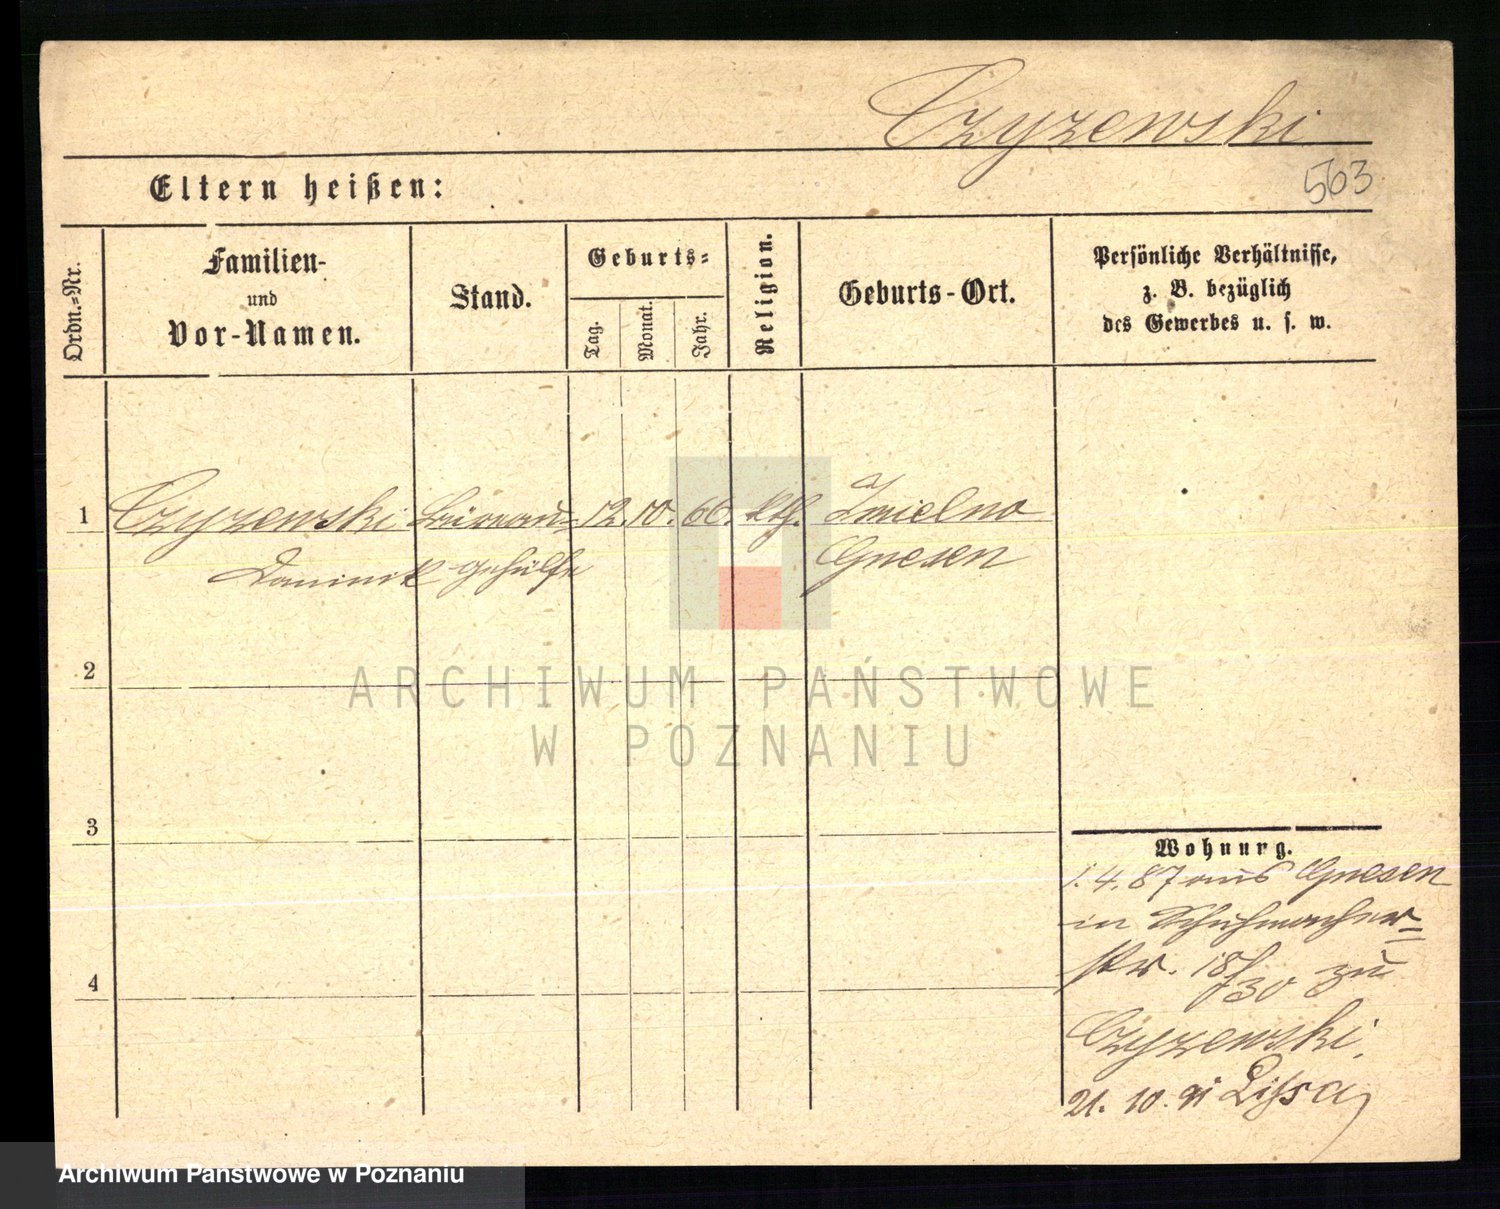 Czyzewski
563
Eltern heißen:
Ordn.=Nr.
Familien-
und
Vor-Namen.
Stand.
Geburts=
Tag.
Monat.
Jahr.
Religion.
Geburts-Ort.
Persönliche Verhältnisse,
z. B. bezüglich
des Gewerbes u. s. w.
1
Czyzewski Büreau= 12. 10. 66. kth. Imielno
Dominik gehülfe Gnesen
2
ARCHIWUM PAŃSTWOWE
W POZNANIU
3
Wohnung.
1. 4. 87 aus Gnesen
in Schuhmacher=
str. 18/30 zu
4
Czyzewski.
21. 10. 91 Lissa
Archiwum Państwowe w Poznaniu